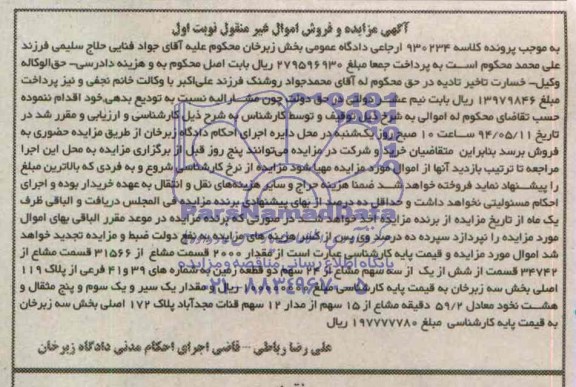 آگهی مزایده و فروش اموال غیر منقول نوبت اول
به موجب پرونده کلاسه ۹۳۰۲۳۴ ارجاعی دادگاه عمومی بخش زبرخان محکوم علیه آقای جواد فنایی حلاج سلیمی فرزند
علی محمد محکوم است به پرداخت جمعا مبلغ ۲۷۹۵۹۶۹۳۰ ریال بابت اصل محکوم به و هزینه دادرسی- حق الوکاله
وکیل- خسارت تاخیر تادیه در حق محکوم له آقای محمدجواد روشنک فرزند علی اکبر با وکالت خانم نجفی و نیز پرداخت
مبلغ ۱۳۹۷۹۸۴۶ ریال بابت نیم عشر دولتی در حق دولت چون مشارالیه نسبت به تودیع بدهی خود اقدام ننموده
حسب تقاضای محکوم له اموالی به شرح ذیل توقیف و توسط کارشناس به شرح ذیل کارشناسی و ارزیابی و مقرر شد در
تاریخ ۹۴/۰۵/۱۱ ساعت ۱۰ صبح روز یکشنبه در محل دایره اجرای احکام دادگاه زبرخان از طریق مزایده حضوری به
فروش برسد بنابراین متقاضیان خرید و شرکت در مزایده می‌توانند پنج روز قبل از برگزاری مزایده به محل این اجرا
مراجعه تا ترتیب بازدید آنها از اموال مورد مزایده مهیا شود مزایده از نرخ کارشناسی شروع و به فردی که بالاترین مبلغ
را پیشنهاد نماید فروخته خواهد شد ضمنا هزینه حراج و سایر هزینه‌های نقل و انتقال به عهده خریدار بوده و اجرای
احکام مسئولیتی نخواهد داشت و حداقل ده درصد از بهای پیشنهادی برنده مزایده فی المجلس دریافت و الباقی ظرف
یک ماه از تاریخ مزایده از برنده مزایده اخذ خواهد شد و در صورتی که برنده مزایده در موعد مقرر الباقی بهای اموال
مورد مزایده را نپردازد سپرده ده درصد وی پس از کسر هزینه های مزایده به نفع دولت ضبط و مزایده تجدید خواهد
شد اموال مورد مزایده و قیمت پایه کارشناسی عبارت است از مقدار ۲۰۰۰ قسمت مشاع از ۳۱۵۶۶ قسمت مشاع از
۳۴۷۴۲ قسمت از شش از یک از سه سهم مشاع از ۲۴ سهم دو قطعه زمین به شماره های ۳۹ و ۴۱ فرعی از پلاک ۱۱۹
اصلی بخش سه زبرخان به قیمت پایه کارشناسی مبلغ ریال و مقدار یک سیر و یک سوم و پنج مثقال و
هشت نخود معادل ۵۹/۲ دقیقه مشاع از ۱۵ سهم از مدار ۱۲ سهم قنات مجدآباد پلاک ۱۷۲ اصلی بخش سه زبرخان
به قیمت پایه کارشناسی مبلغ ۱۹۷۷۷۷۷۸۰ ریال
علی رضا رباطی - قاضی اجرای احکام مدنی دادگاه زبرخان
ParsNamadData
پایگاه اطلاع رسانی مناقصه و مزایده
۰۲۱-۸۸۳۴۹۶۷۰-۵